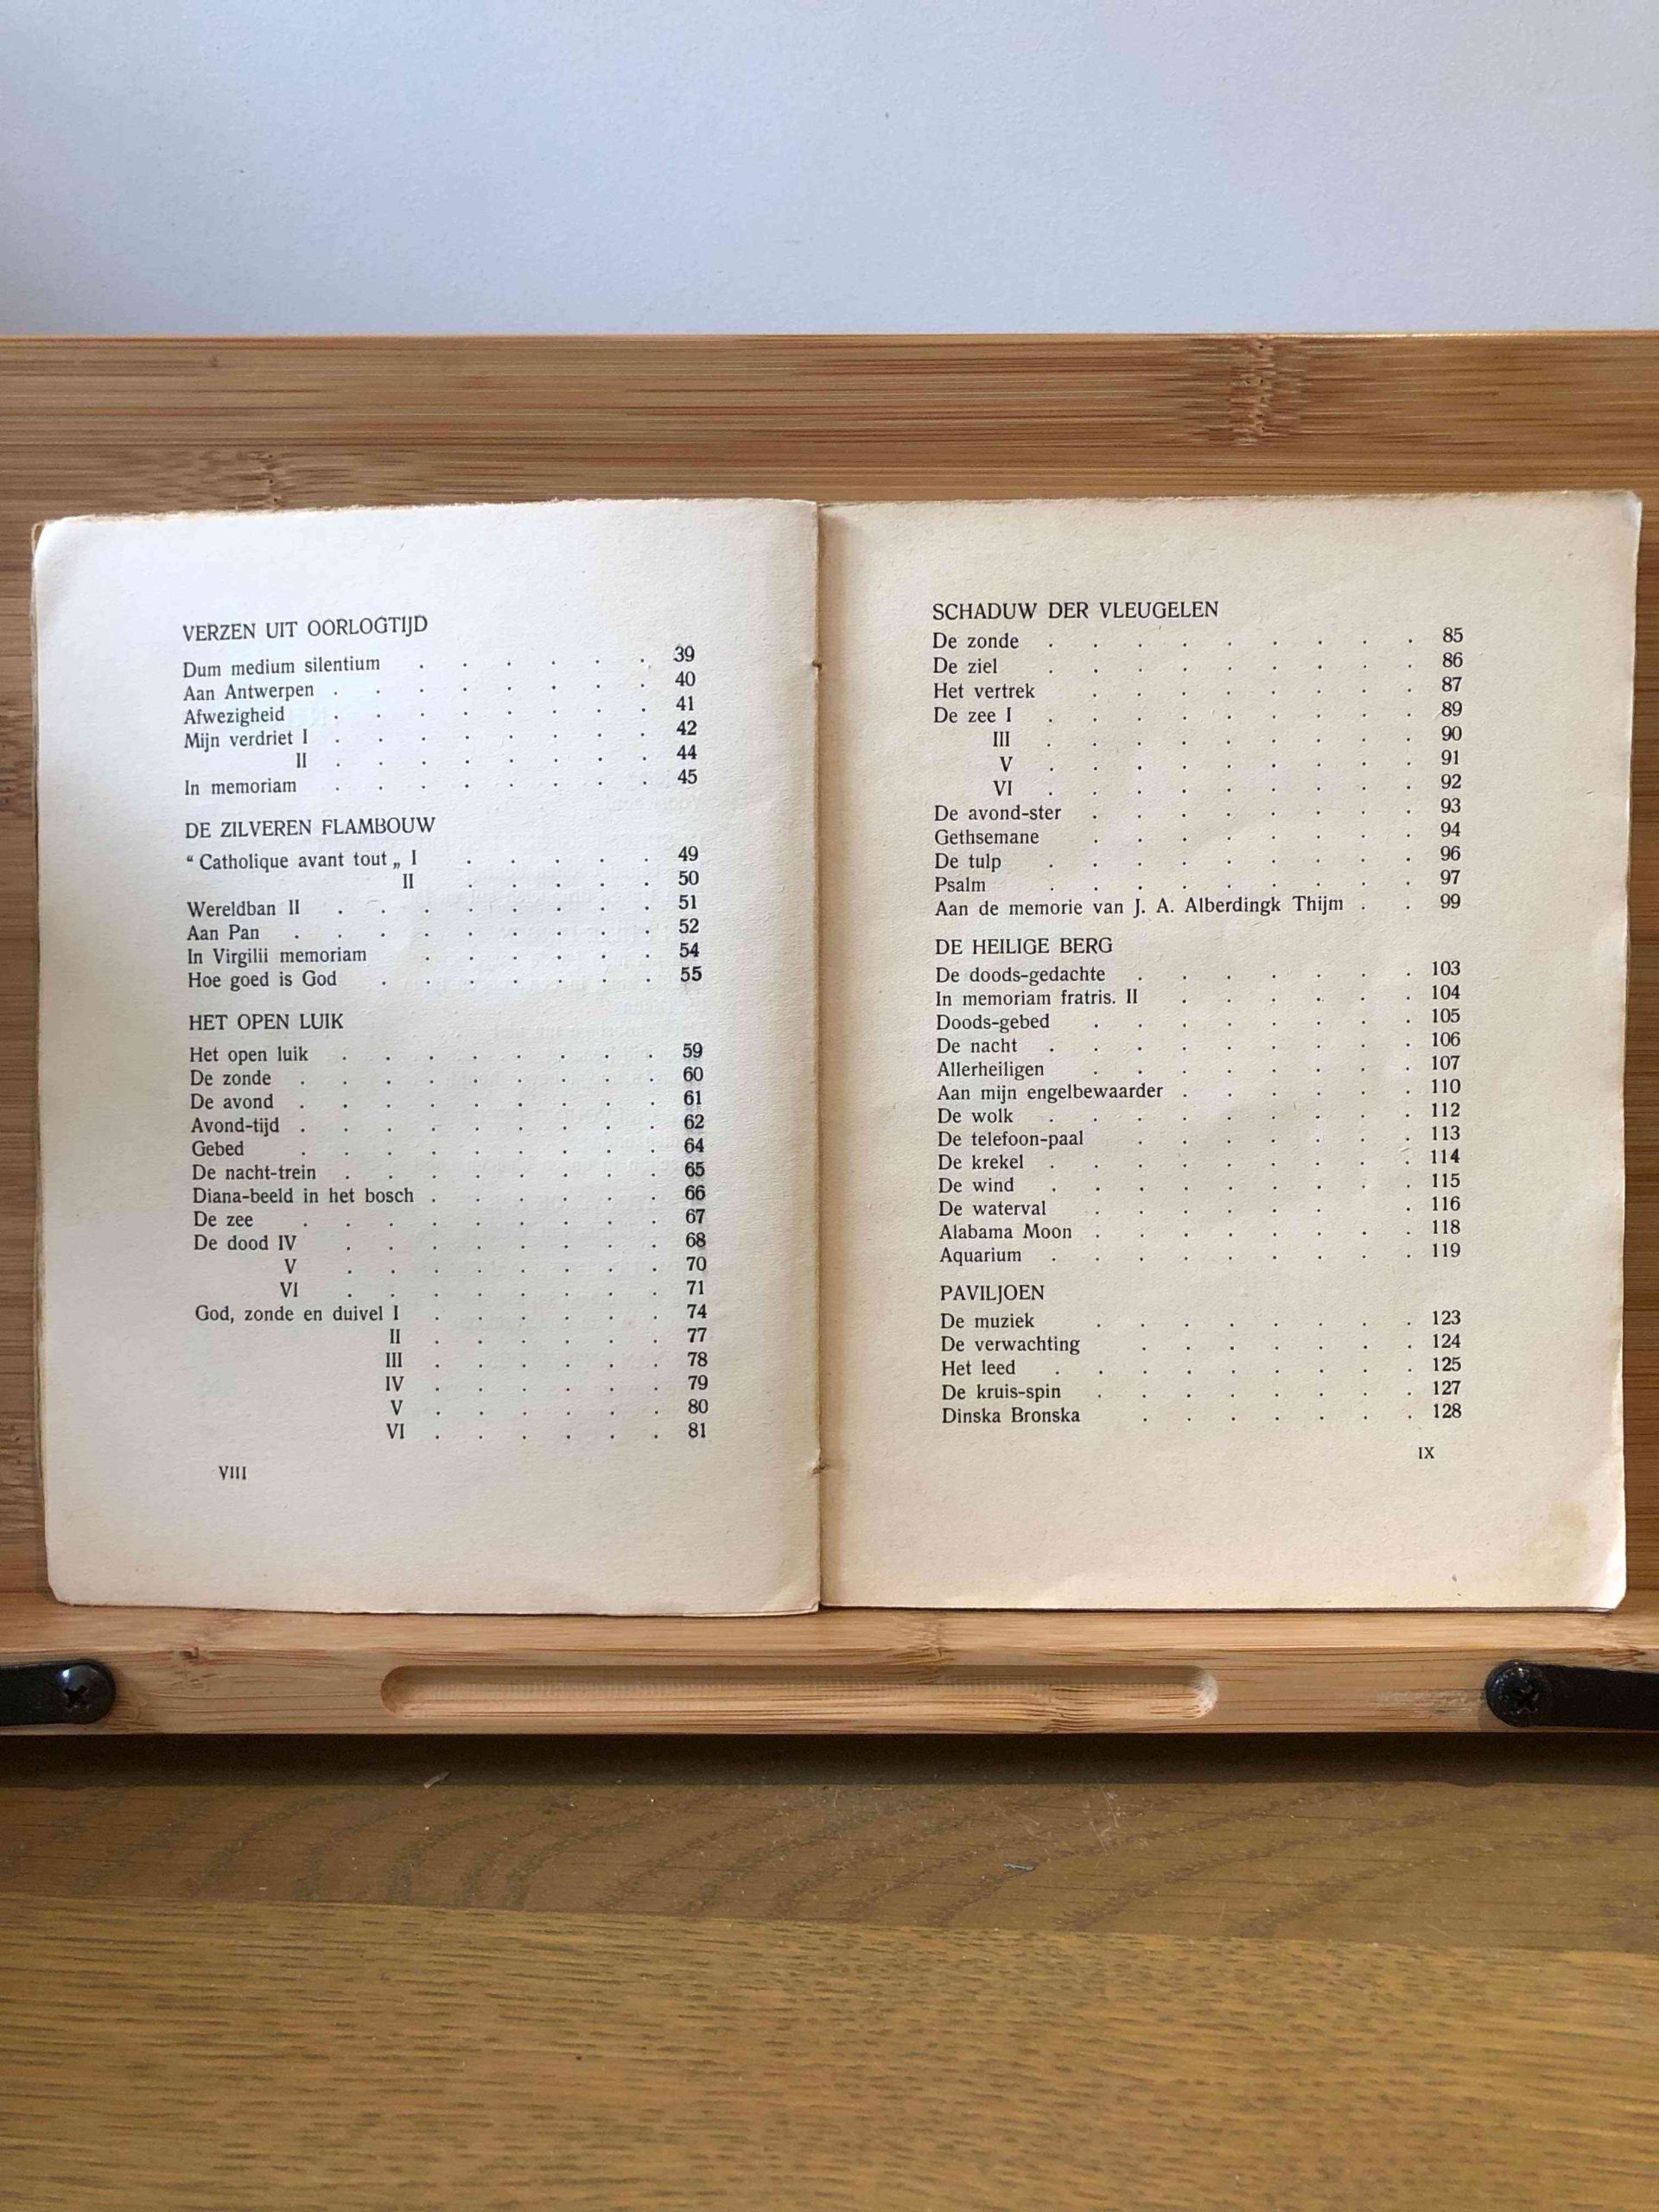 VERZEN UIT OORLOGTIJD
Dum medium silentium . . . . . . 39
Aan Antwerpen . . . . . . . . 40
Afwezigheid . . . . . . . . 41
Mijn verdriet I . . . . . . . . 42
II . . . . . . . . 44
In memoriam . . . . . . . . 45
DE ZILVEREN FLAMBOUW
“ Catholique avant tout „ I . . . . . 49
II . . . . . 50
Wereldban II . . . . . . . . 51
Aan Pan . . . . . . . . . 52
In Virgilii memoriam . . . . . . 54
Hoe goed is God . . . . . . . 55
HET OPEN LUIK
Het open luik . . . . . . . . 59
De zonde . . . . . . . . . 60
De avond . . . . . . . . . 61
Avond-tijd . . . . . . . . . 62
Gebed . . . . . . . . . 64
De nacht-trein . . . . . . . . 65
Diana-beeld in het bosch . . . . . . 66
De zee . . . . . . . . . 67
De dood IV . . . . . . . . 68
V . . . . . . . . 70
VI . . . . . . . . 71
God, zonde en duivel I . . . . . . 74
II . . . . . . 77
III . . . . . . 78
IV . . . . . . 79
V . . . . . . 80
VI . . . . . . 81
VIII
SCHADUW DER VLEUGELEN
De zonde . . . . . . . . . 85
De ziel . . . . . . . . . 86
Het vertrek . . . . . . . . 87
De zee I . . . . . . . . . 89
III . . . . . . . . . 90
V . . . . . . . . . 91
VI . . . . . . . . . 92
De avond-ster . . . . . . . . 93
Gethsemane . . . . . . . . 94
De tulp . . . . . . . . . 96
Psalm . . . . . . . . . 97
Aan de memorie van J. A. Alberdingk Thijm . . 99
DE HEILIGE BERG
De doods-gedachte . . . . . . . 103
In memoriam fratris. II . . . . . . 104
Doods-gebed . . . . . . . . 105
De nacht . . . . . . . . . 106
Allerheiligen . . . . . . . . 107
Aan mijn engelbewaarder . . . . . . 110
De wolk . . . . . . . . . 112
De telefoon-paal . . . . . . . 113
De krekel . . . . . . . . . 114
De wind . . . . . . . . . 115
De waterval . . . . . . . 116
Alabama Moon . . . . . . . . 118
Aquarium . . . . . . . . . 119
PAVILJOEN
De muziek . . . . . . . . 123
De verwachting . . . . . . . 124
Het leed . . . . . . . . . 125
De kruis-spin . . . . . . . . 127
Dinska Bronska . . . . . . . 128
IX